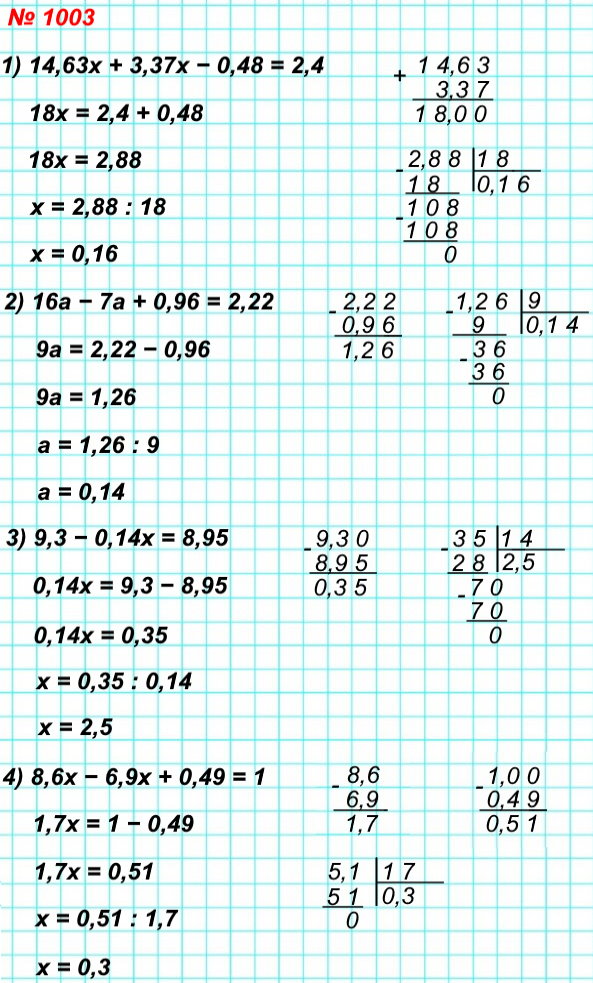 № 1003
1) 14,63x + 3,37x − 0,48 = 2,4
+ 14,63
3,37
18,00
18x = 2,4 + 0,48
18x = 2,88
x = 2,88 : 18
x = 0,16
- 2,88 | 18
18 | 0,16
- 108
108
0
2) 16a − 7a + 0,96 = 2,22
9a = 2,22 − 0,96
9a = 1,26
a = 1,26 : 9
a = 0,14
- 2,22
0,96
1,26
- 1,26 | 9
9 | 0,14
- 36
36
0
3) 9,3 − 0,14x = 8,95
0,14x = 9,3 − 8,95
0,14x = 0,35
x = 0,35 : 0,14
x = 2,5
- 9,30
8,95
0,35
- 35 | 14
28 | 2,5
- 70
70
0
4) 8,6x − 6,9x + 0,49 = 1
1,7x = 1 − 0,49
1,7x = 0,51
x = 0,51 : 1,7
x = 0,3
- 8,6
6,9
1,7
- 1,00
0,49
0,51
5,1 | 17
51 | 0,3
0